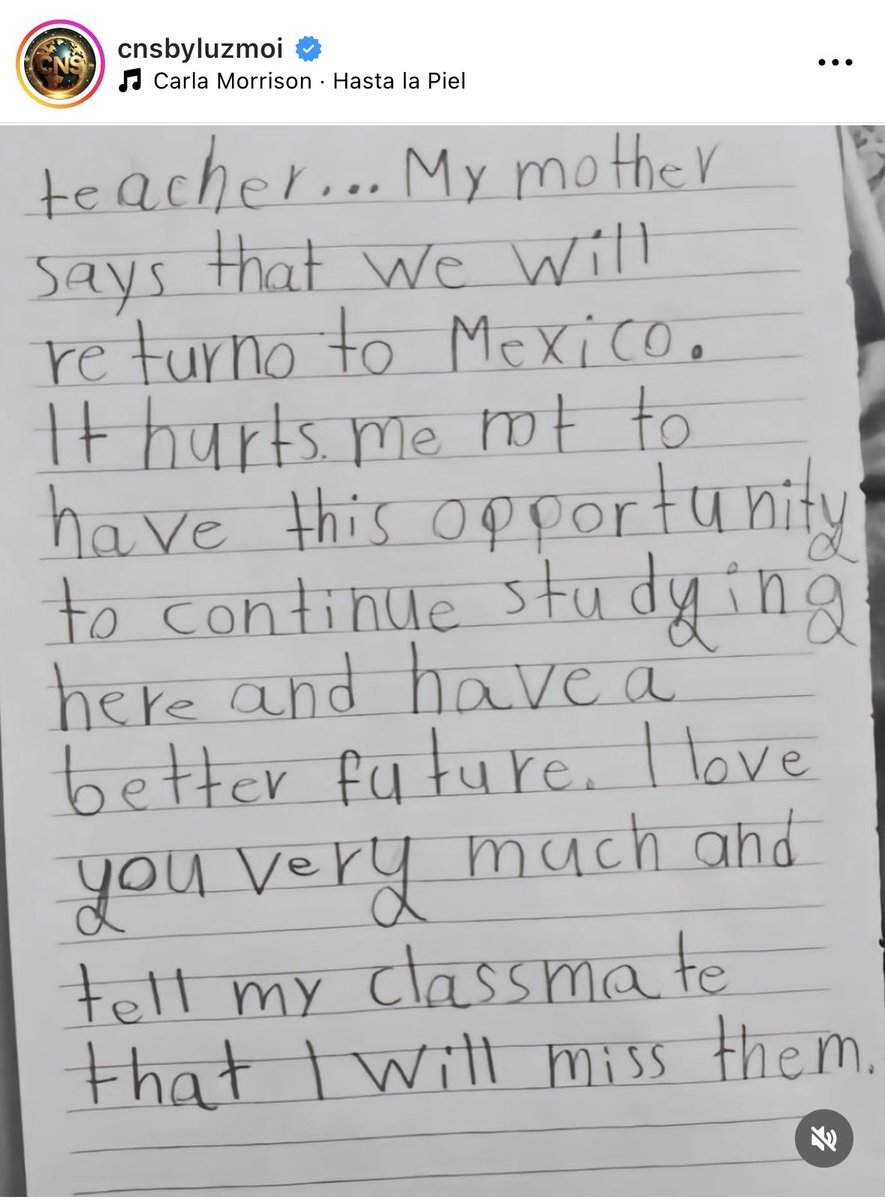 cnsbyluzmoi
Carla Morrison · Hasta la Piel
CNS
teacher... My mother
says that we will
returno to Mexico.
It hurts. me not to
have this opportunity
to continue studying
here and have a
better future. I love
you very much and
tell my classmate
that I will miss them.